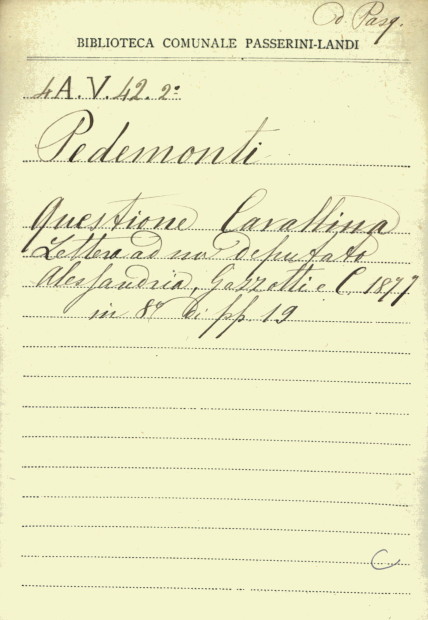 d. Pasq.
BIBLIOTECA COMUNALE PASSERINI-LANDI
4 A. V. 42. 2º
Pedemonti
Questione Cavallina
Lettera ad un deputato
Alessandria, Gazzotti e C. 1877
in 8º di pp 19
C